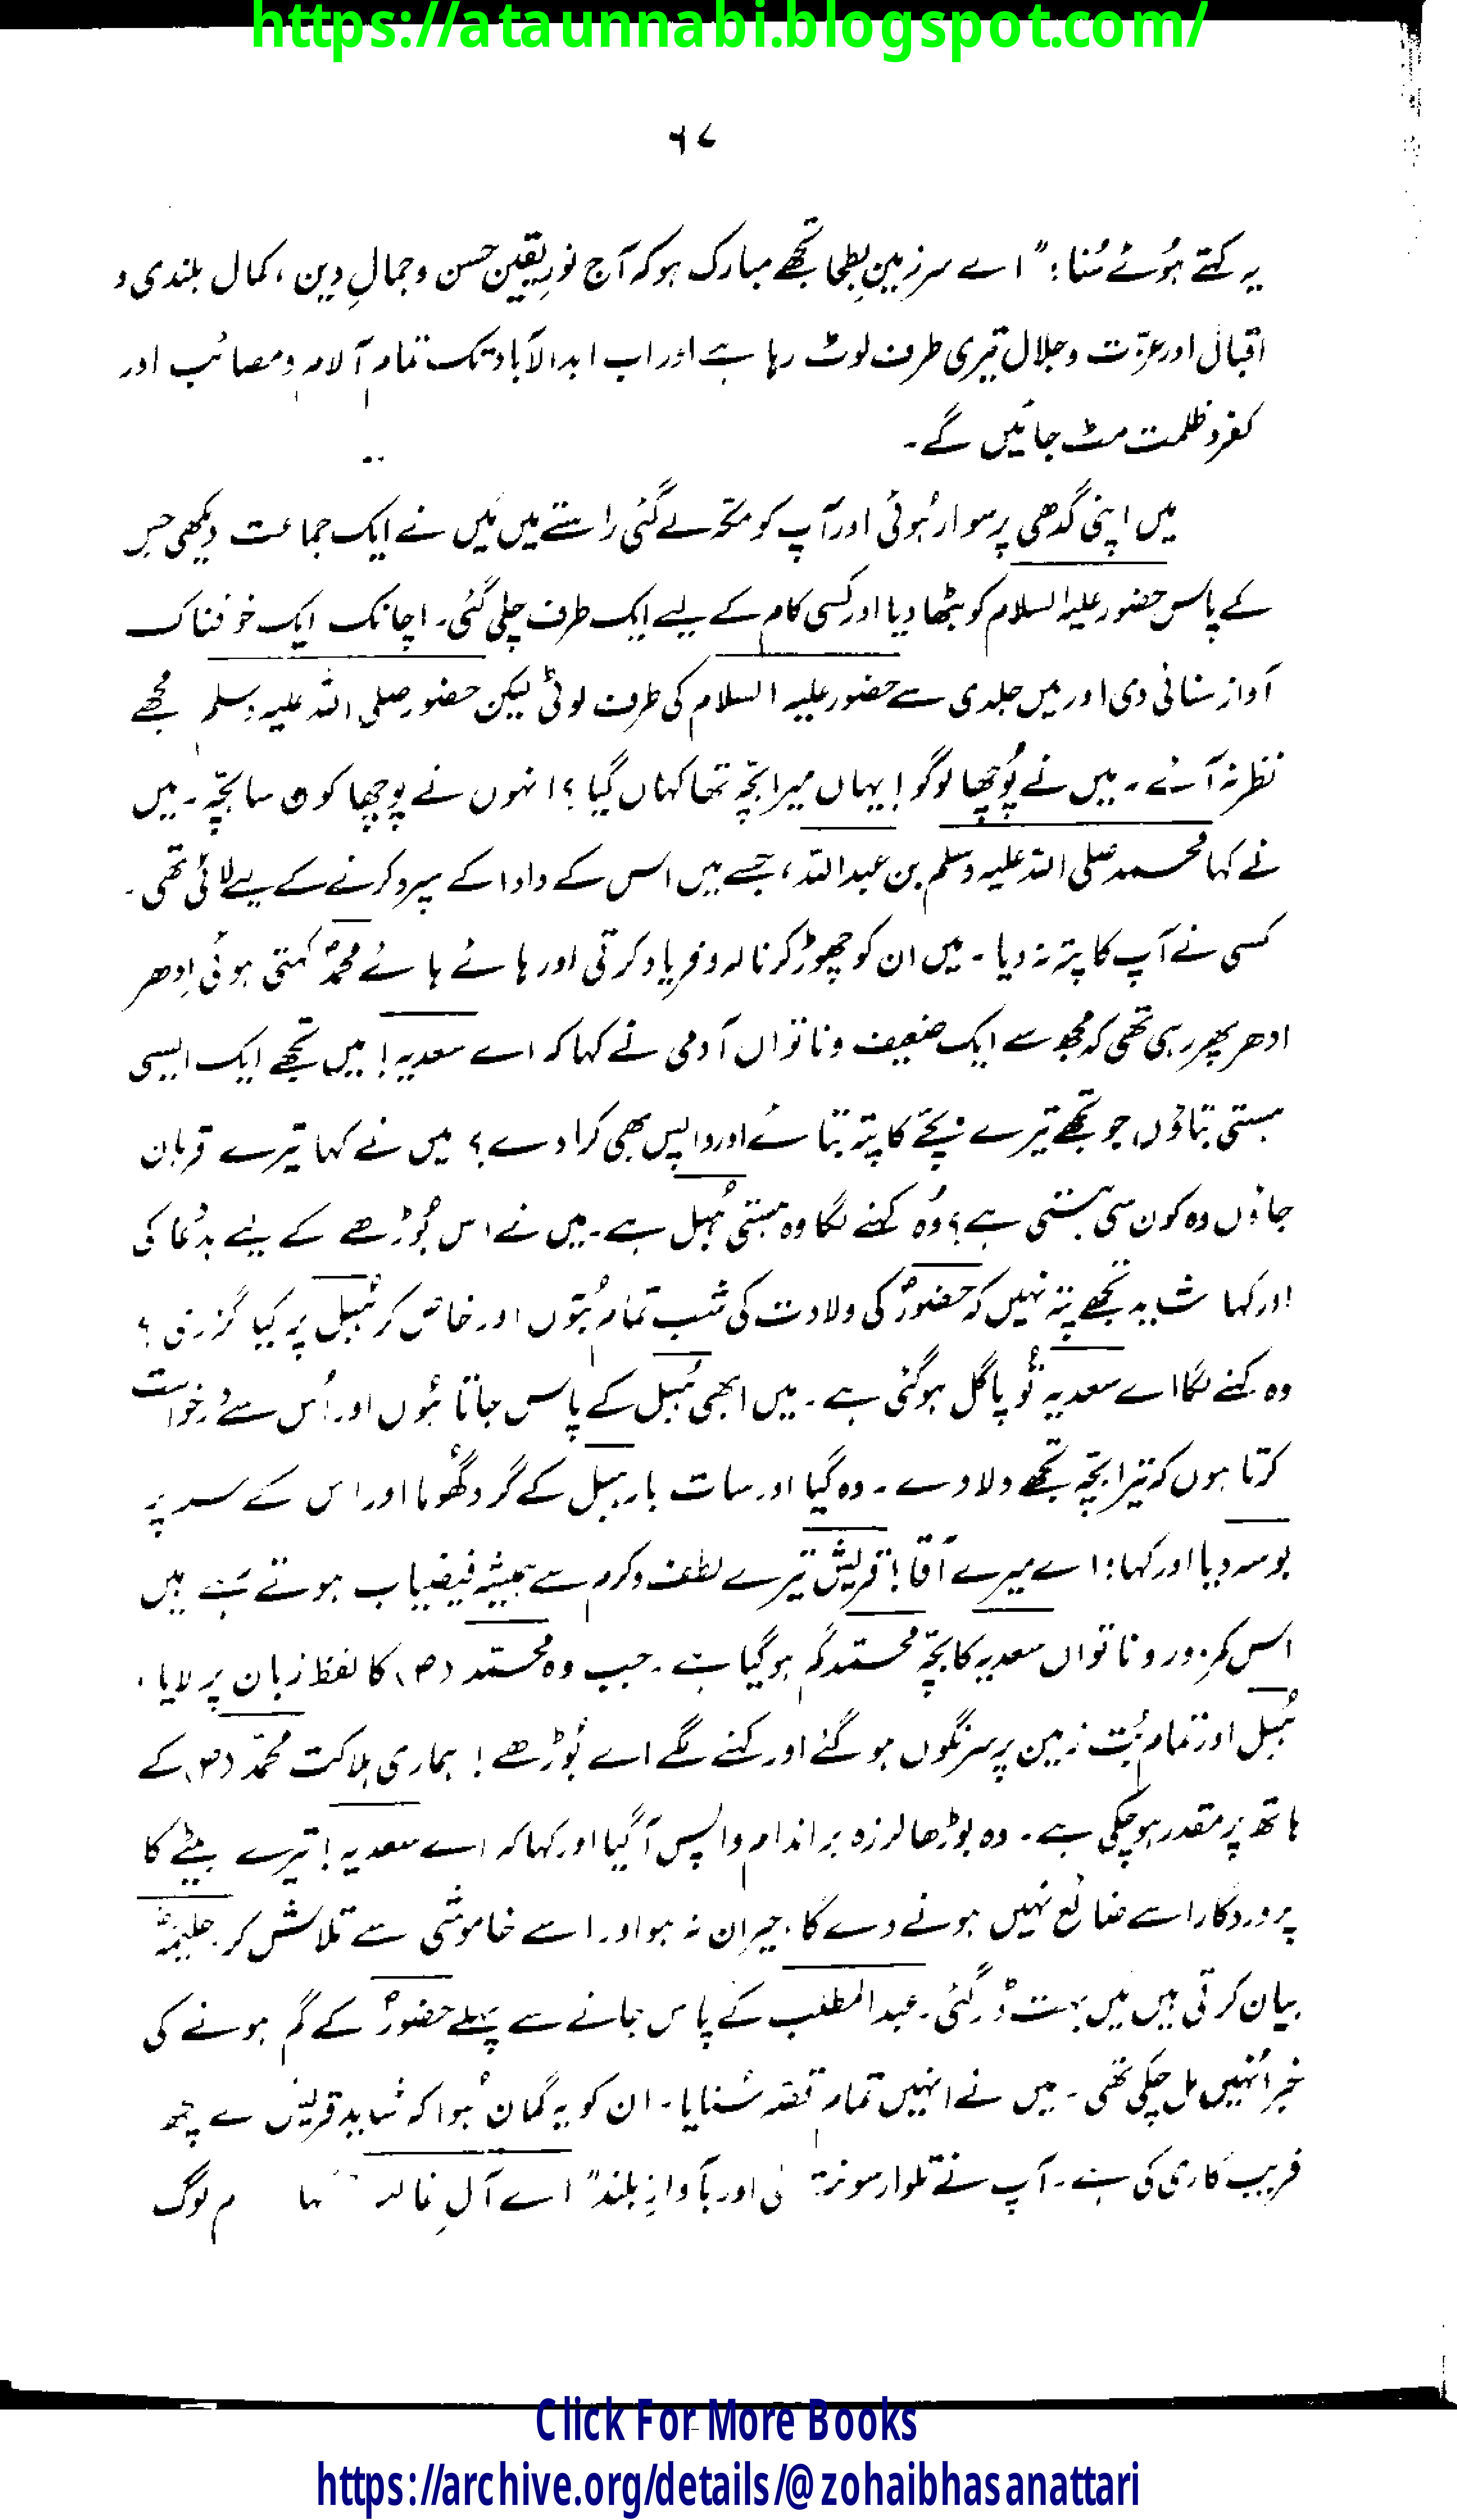 https://ataunnabi.blogspot.com/
۶۷
یہ کہتے ہُوئے سُنا: "اے سرزمینِ بطحا تجھے مبارک ہو کہ آج نورِ یقین حسن و جمالِ دین، کمال بلندی و
اقبال اور عزّت و جلال تیری طرف لوٹ رہا ہے اور اب ابدالآباد تک تمام آلام و مصائب اور
کفر و ظلمت مٹ جائیں گے۔
میں اپنی گدھی پر سوار ہُوئی اور آپ کو مکّہ لے گئی راستے میں مَیں نے ایک جماعت دیکھی جس
کے پاس حضور علیہ السلام کو بٹھا دیا اور کسی کام کے لیے ایک طرف چلی گئی۔ اچانک ایک خوفناک
آواز سنائی دی اور میں جلدی سے حضور علیہ السلام کی طرف لوٹی لیکن حضور صلی اللہ علیہ وسلم مجھے
نظر نہ آئے۔ میں نے پُوچھا لوگو! یہاں میرا بچّہ تھا کہاں گیا؟ انہوں نے پوچھا کون سا بچّہ۔ میں
نے کہا محمد صلی اللہ علیہ وسلم بن عبداللہ، جسے میں اس کے دادا کے سپرد کرنے کے لیے لائی تھی۔
کسی نے آپ کا پتہ نہ دیا۔ میں ان کو چھوڑ کر نالہ و فریاد کرتی اور ہائے ہائے محمدؐ کہتی ہوئی اِدھر
ادھر پھر رہی تھی کہ مجھ سے ایک ضعیف و ناتواں آدمی نے کہا کہ اے سعدیہ! میں تجھے ایک ایسی
ہستی بتاؤں جو تجھے تیرے بچّے کا پتہ بتائے اور واپس بھی کرا دے؟ میں نے کہا تیرے قربان
جاؤں وہ کون سی ہستی ہے؟ وُہ کہنے لگا وہ ہستی ہُبل ہے۔ میں نے اس بُوڑھے کے لیے بددُعا کی
اور کہا شاید تجھے پتہ نہیں کہ حضورؐ کی ولادت کی شب تمام بُتوں اور خاص کر ہُبل پر کیا گزری؟
وہ کہنے لگا اے سعدیہ تُو پاگل ہو گئی ہے۔ میں ابھی ہُبل کے پاس جاتا ہُوں اور اُس سے درخواست
کرتا ہوں کہ تیرا بچّہ تجھے دلا دے۔ وہ گیا اور سات بار ہبل کے گرد گھُوما اور اس کے سر پر
بوسہ دیا اور کہا: اے میرے آقا! قریش تیرے لطف و کرم سے ہمیشہ فیضیاب ہوتے رہے ہیں
اس کمزور و ناتواں سعدیہ کا بچّہ محمّد گم ہو گیا ہے۔ جب وہ محمّد (ص) کا لفظ زبان پر لایا،
ہُبل اور تمام بُت زمین پر سرنگوں ہو گئے اور کہنے لگے اے بُوڑھے! ہماری ہلاکت محمّد (ص) کے
ہاتھ پر مقدر ہو چکی ہے۔ وہ بوڑھا لرزہ براندام واپس آ گیا اور کہا کہ اے سعدیہ! تیرے بیٹے کا
پروردگار اسے ضائع نہیں ہونے دے گا۔ حیران نہ ہو اور اسے خاموشی سے تلاش کر۔ حلیمہؓ
بیان کرتی ہیں میں بہت ڈر گئی۔ عبدالمطلب کے پاس جانے سے پہلے حضورؐ کے گم ہونے کی
خبر اُنہیں مل چکی تھی۔ میں نے انہیں تمام قصّہ سُنایا۔ ان کو یہ گمان ہُوا کہ شاید قریش نے کچھ
فریب کاری کی ہے۔ آپ نے تلوار سونت لی اور بآوازِ بلند "اے آلِ غالب لوگ
Click For More Books
https://archive.org/details/@zohaibhasanattari